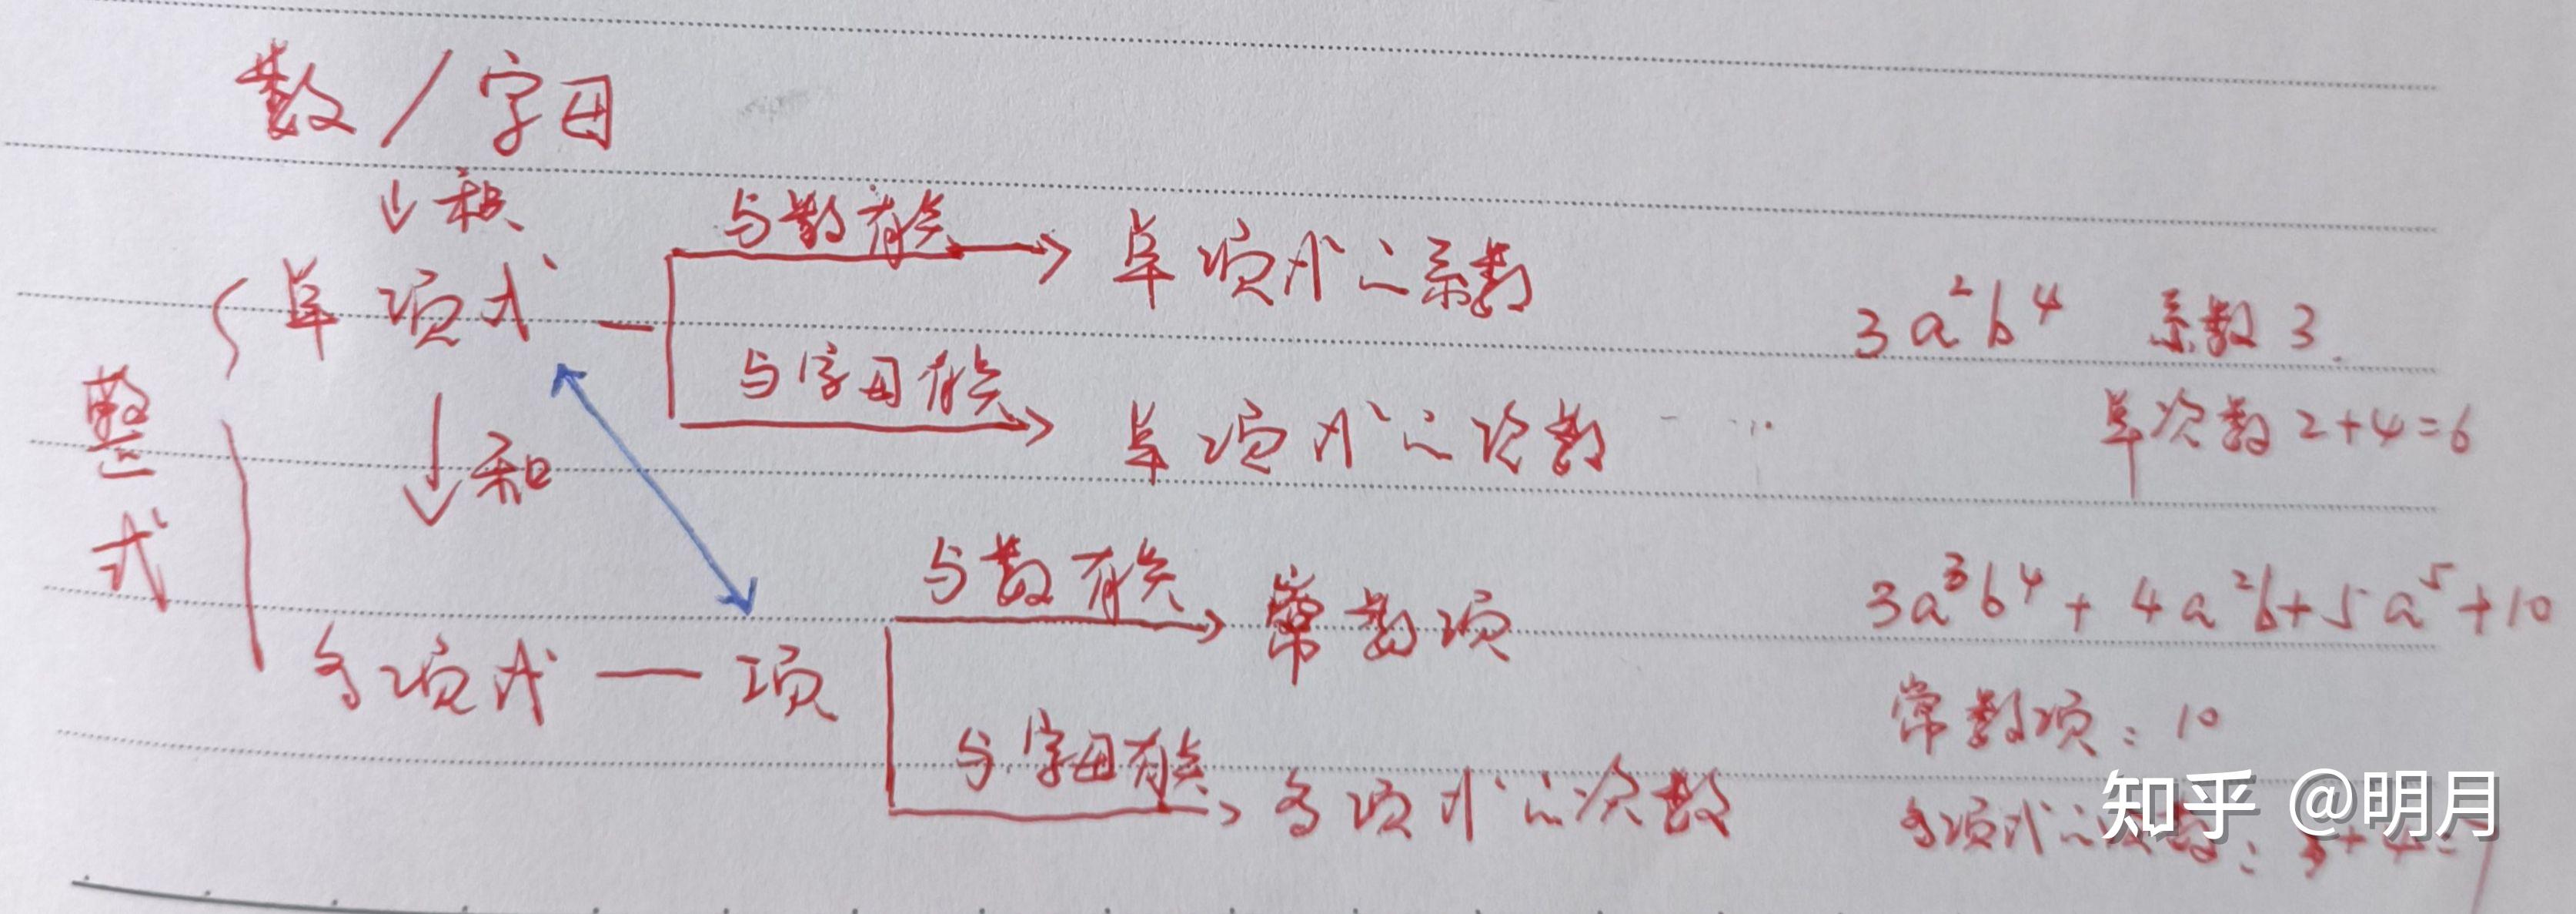 数/字母
↓积
与数有关
单项式 — → 单项式之系数
3a²b⁴ 系数3.
整式
与字母有关
→ 单项式之次数
单次数2+4=6
↓和
与数有关
→ 常数项
3a³b⁴+4a²b+5a⁵+10
多项式 — 项
常数项：10
与字母有关
→ 多项式之次数
多项式之次数：3+4=7
知乎 @明月